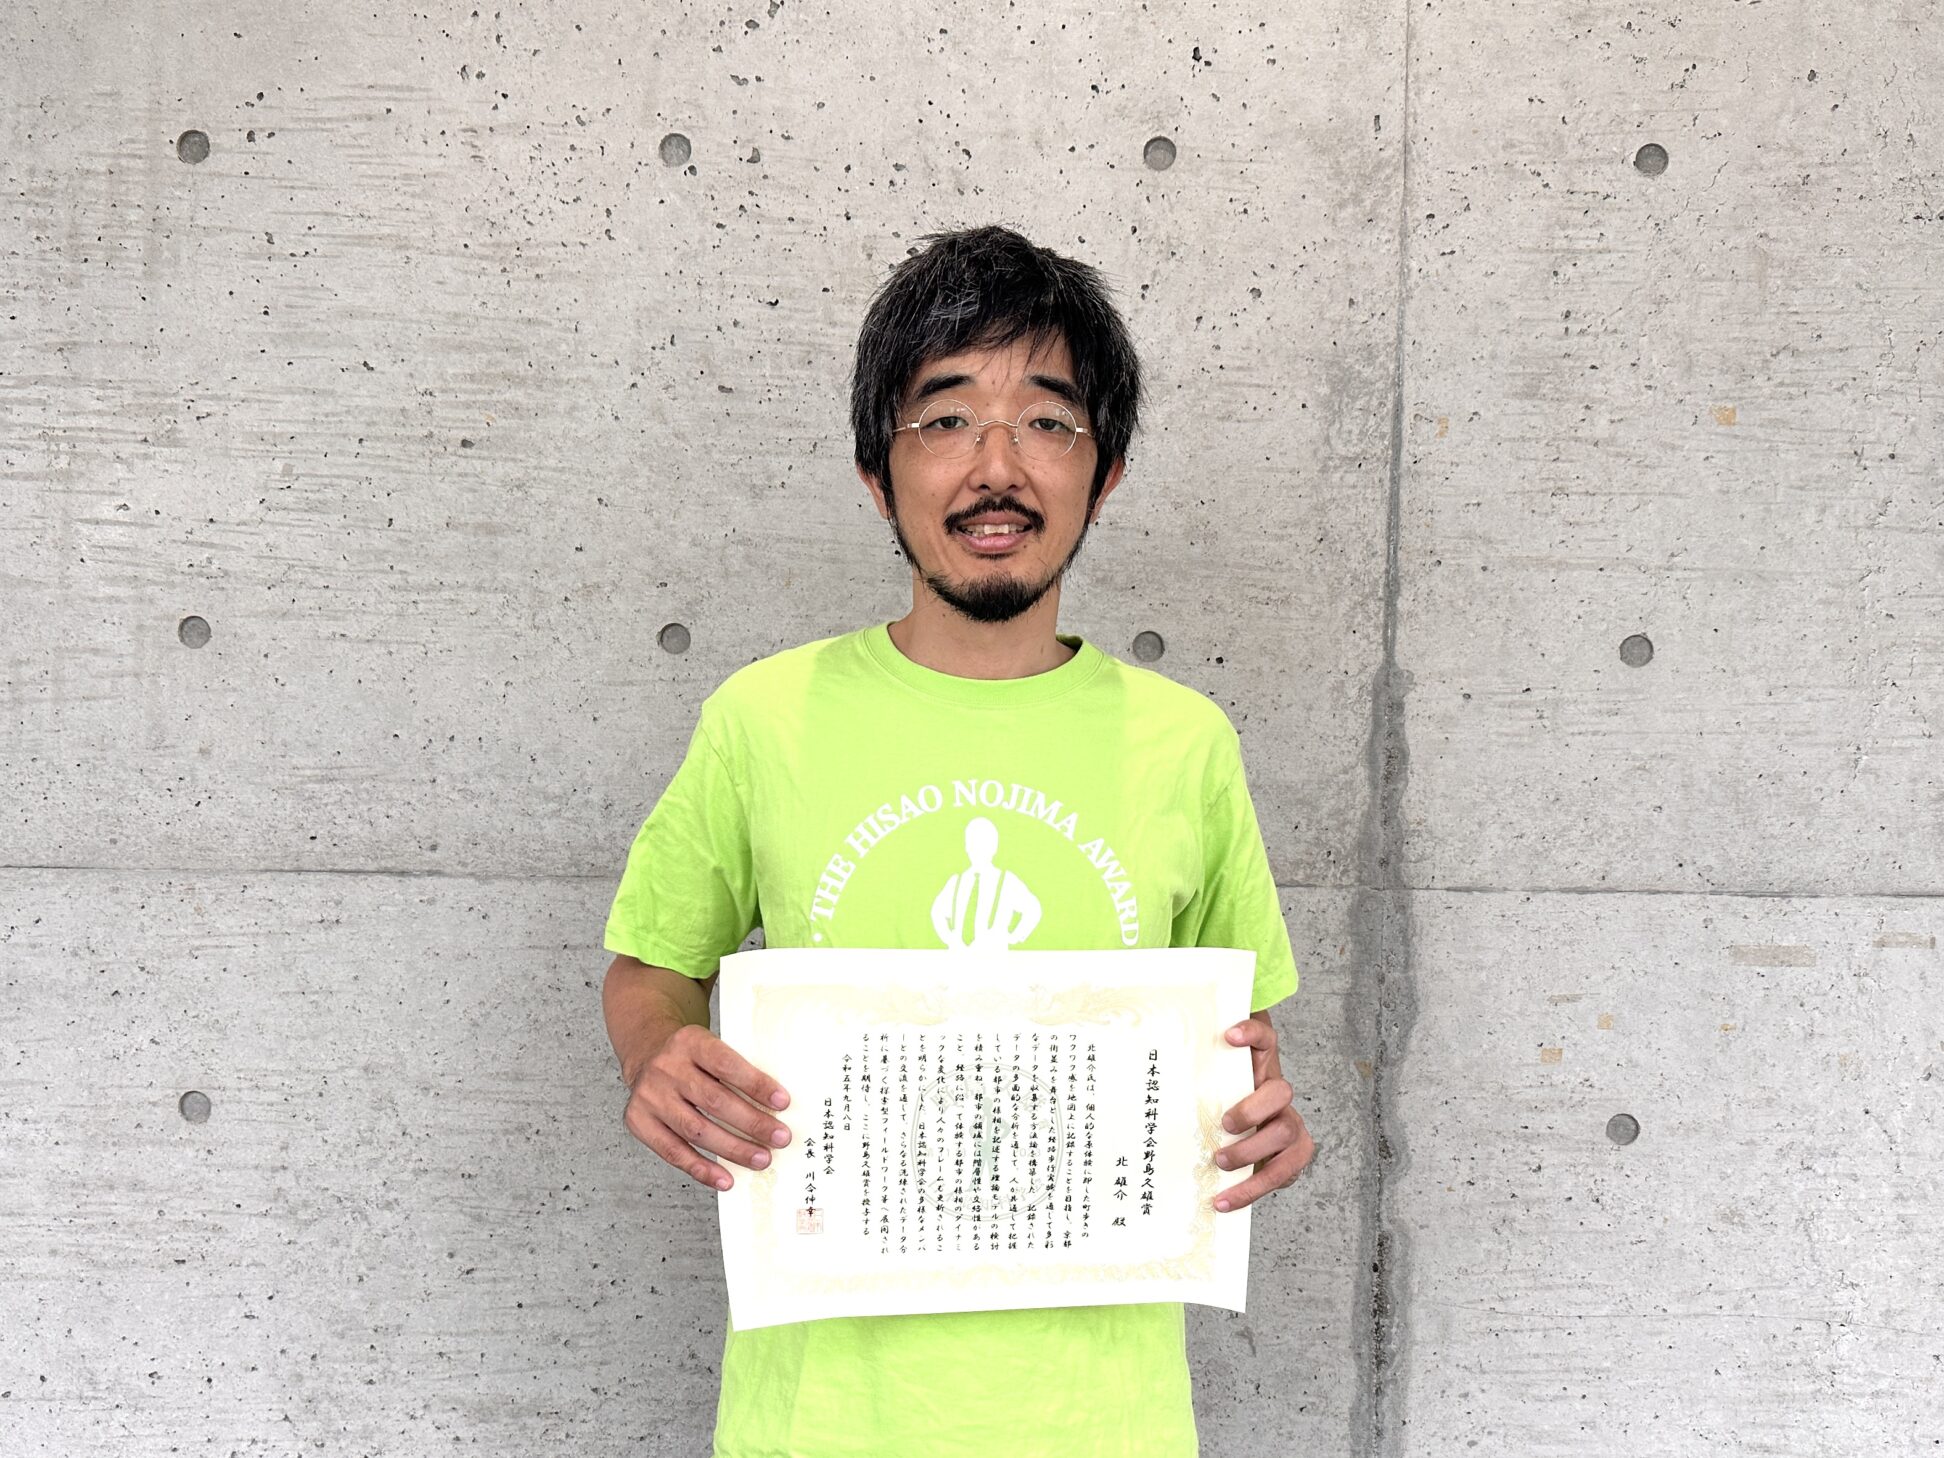 ・THE HISAO NOJIMA AWARD
日本認知科学会野島久雄賞
北 雄介 殿
北雄介氏は、個人的な原体験に即した町歩きの
ワクワク感を地図上に記録することを目指し、京都
の街並みを舞台とした経路歩行実験を通して多彩
なデータを収集する方法論を構築した。記録された
データの多面的な分析を通して、人が共通して把握
している都市の様相を記述する理論モデルの検討
を積み重ね、都市の領域には階層性や交絡性がある
こと、経路に沿って体験する都市の様相のダイナミ
ックな変化により人々のフレームも更新されるこ
とを明らかにした。日本認知科学会の多様なメンバ
ーとの交流を通して、さらなる洗練されたデータ分
析に基づく探索型フィールドワーク等へ展開され
ることを期待し、ここに野島久雄賞を授与する
令和五年九月八日
日本認知科学会
会長 川合伸幸